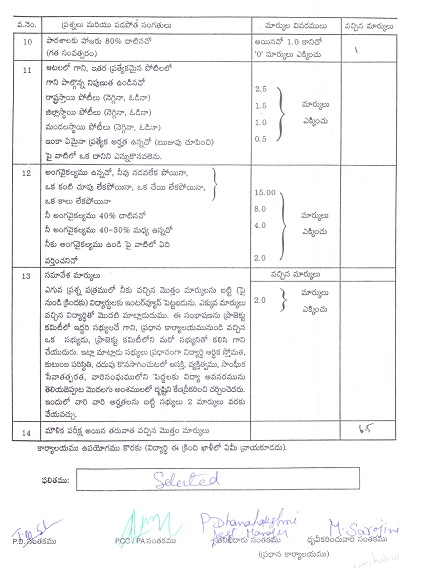 వ.నెం. ప్రశ్నలు మరియు పడపోత సంగతులు మార్కుల వివరములు వచ్చిన మార్కులు
10 పాఠశాలకు హాజరు 80% దాటినచో అయినచో 1.0 కానిచో 1
(గత సంవత్సరం) '0' మార్కులు ఎక్కించు
11 ఆటలలో గాని, ఇతర ప్రత్యేకమైన పోటీలలో
గాని పాల్గొన్న నిపుణుత ఉండినచో 2.5
రాష్ట్రస్థాయి పోటీలు (నెగ్గినా, ఓడినా) 1.5 మార్కులు
జిల్లాస్థాయి పోటీలు (నెగ్గినా, ఓడినా) 1.0 ఎక్కించు
మండలస్థాయి పోటీలు (నెగ్గినా, ఓడినా)
ఇంకా ఏమైనా ప్రత్యేక అర్హత ఉన్నచో (ఋజువు చూపించి) 0.5
పై వాటిలో ఒక దానిని ఎన్నుకొనవలెను.
12 అంగవైకల్యము ఉన్నచో, నీవు నడవలేక పోయినా,
ఒక కంటి చూపు లేకపోయినా, ఒక చేయి లేకపోయినా, 15.00
ఒక కాలు లేకపోయినా 8.0
నీ అంగవైకల్యము 40% దాటినచో 4.0 మార్కులు
నీ అంగవైకల్యము 40-30% మధ్య ఉన్నచో ఎక్కించు
నీకు అంగవైకల్యము ఉండి పై వాటిలో ఏది
వర్తించనిచో 2.0
13 సమావేశ మార్కులు వచ్చిన మార్కులు
ఎగువ ప్రశ్న పత్రములో నీకు వచ్చిన మొత్తం మార్కులను బట్టి (పై
నుండి క్రిందకు) విద్యార్థులకు ఇంటర్వ్యూవ్ పెట్టబడును. ఎక్కువ మార్కులు 2.0 మార్కులు
వచ్చిన విద్యార్థితో మొదటి మాట్లాడుదుము. ఈ సంభాషణను ప్రాజెక్టు ఎక్కించు
కమిటీలో ఇద్దరి సభ్యులచే గాని, (ప్రధాన కార్యాలయమునుండి వచ్చిన
ఒక సభ్యుడు, ప్రాజెక్టు కమిటీలోని మరో సభ్యునితో కలిసి గాని
చేయుదురు. ఇట్లా మాట్లాడు సభ్యులు ప్రధానంగా విద్యార్థి ఆర్థిక స్తోమత,
కుటుంబ పరిస్థితి, చదువు కొనసాగించుటలో ఆసక్తి, వ్యక్తిత్వము, సాంఘీక
సేవాతత్పరత, వారిసంఘములోని పెద్దలకు విద్యా అవసరమును
తెలియజెప్పుట మొదలగు అంశములలో దృష్టిని కేంద్రీకరించి చర్చించెదరు.
ఇందులో వారి వారి అర్హతలను బట్టి సభ్యులు 2 మార్కులు వరకు
వేయవచ్చు.
14 మౌళిక పరీక్ష అయిన తరువాత వచ్చిన మొత్తం మార్కులు 65
కార్యాలయము ఉపయోగము కొరకు (విద్యార్థి ఈ క్రింది ఖాళీలో ఏమీ వ్రాయకూడదు).
ఫలితము: Selected
P. Dhanalakshmi M. Sarojini
P.D. సంతకము PCC / PA సంతకము సంతకము ధృవీకరించువారి సంతకము
(ప్రధాన కార్యాలయము)